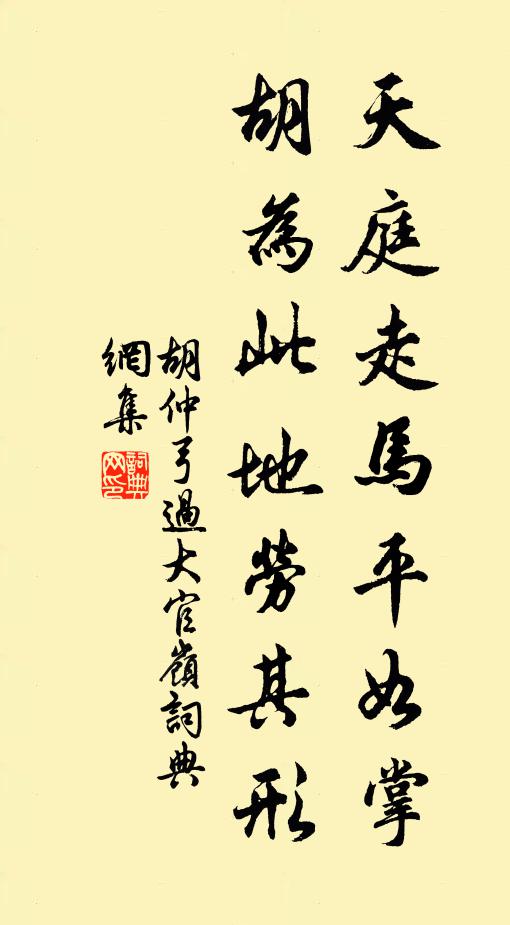 天庭走馬平如掌
胡為此地勞其形
胡仲弓過大官嶺詞典
網集
詞典網印